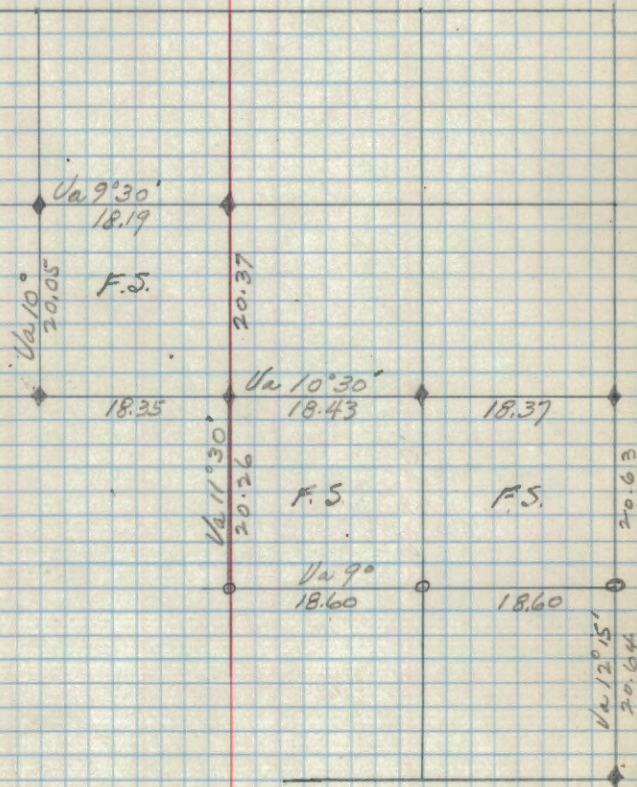 Va 9°30'
18.19
Va 10°
20.05
F.S.
20.37
18.35
Va 10°30'
18.43
18.37
Va 11°30'
20.26
F.S.
F.S.
20.63
Va 9°
18.60
18.60
Va 12°15'
20.64